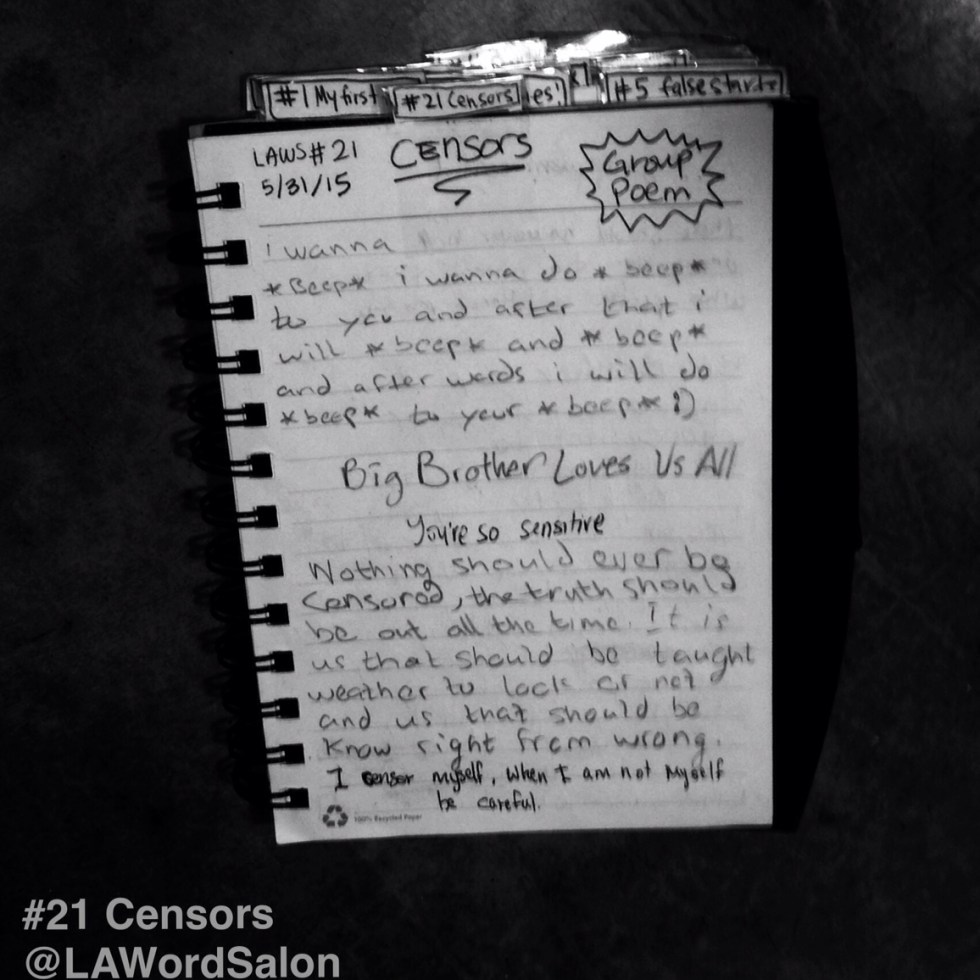 #1 My first
#21 Censors
es!
#5 false starts
LAWS# 21
5/31/15
CENSORS
Group
Poem
i wanna
*Beep* i wanna do *beep*
to you and after that i
will *beep* and *beep*
and after words i will do
*beep* to your *beep* :)
Big Brother Loves Us All
You're so sensitive
Nothing should ever be
Censored, the truth should
be out all the time. It is
us that should be taught
weather to look or not
and us that should be
Know right from wrong.
I censor myself, when I am not myself
be careful.
100% Recycled Paper
#21 Censors
@LAWordSalon